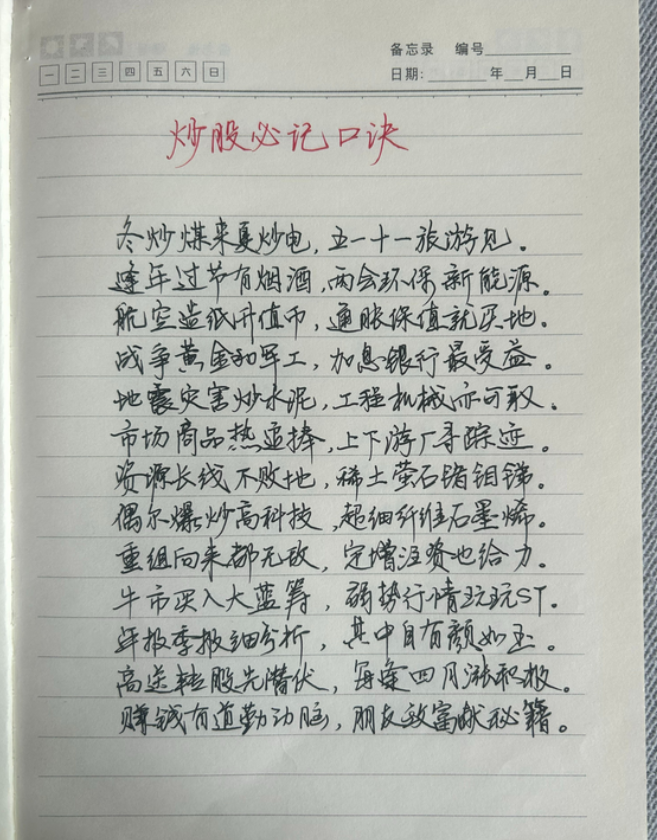 备忘录 编号
一 二 三 四 五 六 日
日期: 年 月 日
炒股必记口诀
冬炒煤来夏炒电，五一十一旅游见。
逢年过节有烟酒，两会环保新能源。
航空造纸升值币，通胀保值就买地。
战争黄金和军工，加息银行最受益。
地震灾害炒水泥，工程机械亦可取。
市场商品热追捧，上下游厂寻踪迹。
资源长线不败地，稀土萤石锗钼锑。
偶尔爆炒高科技，超细纤维石墨烯。
重组向来都无敌，定增注资也给力。
牛市买入大蓝筹，弱势行情玩玩ST.
年报季报细分析，其中自有颜如玉。
高送转股先潜伏，每逢四月涨积极。
赚钱有道勤动脑，朋友致富献秘籍。